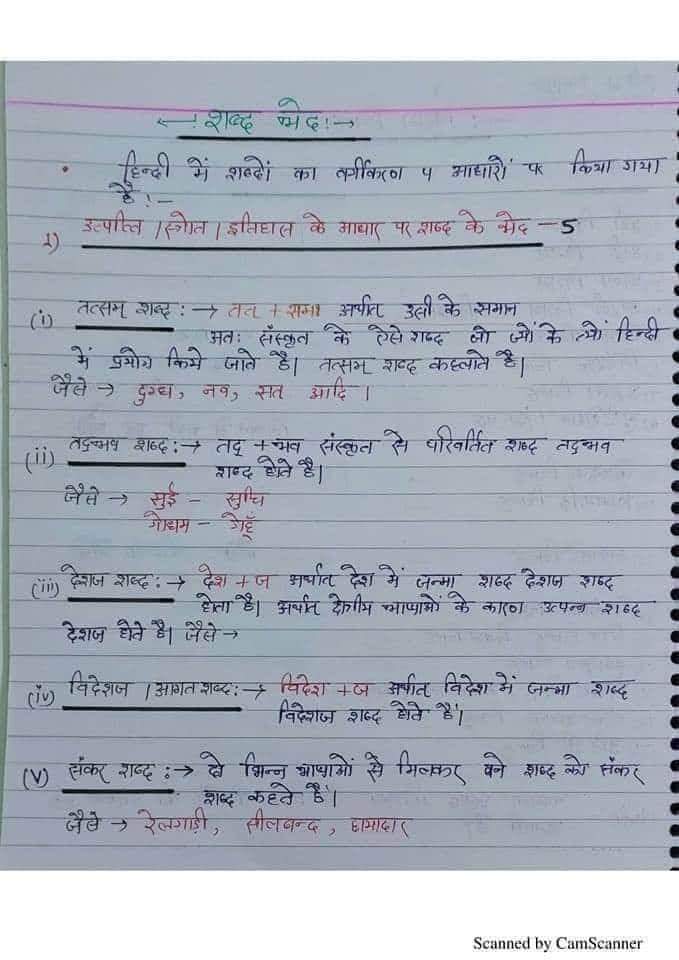 ←! शब्द भेद !→
• हिन्दी में शब्दों का वर्गीकरण ५ आधारों पर किया गया
है !–
1) उत्पत्ति / स्त्रोत / इतिहास के आधार पर शब्द के भेद – 5
(i) तत्सम शब्द :→ तत् + समा अर्थात उसी के समान
अतः संस्कृत के ऐसे शब्द जो ज्यों के त्यों हिन्दी
में प्रयोग किये जाते है। तत्सम शब्द कहलाते है।
जैसे → दुग्ध, नव, सत आदि ।
(ii) तद्भव शब्द :→ तद् + भव संस्कृत से परिवर्तित शब्द तद्भव
शब्द होते है।
जैसे → सुई – सुचि
गोधम – गेहूँ
(iii) देशज शब्द :→ देश + ज अर्थात देश में जन्मा शब्द देशज शब्द
होता है। अर्थात क्षेत्रीय भाषाओं के कारण उत्पन्न शब्द
देशज होते है। जैसे →
(iv) विदेशज / आगत शब्द :→ विदेश + ज अर्थात विदेश में जन्मा शब्द
विदेशज शब्द होते है।
(V) संकर शब्द :→ दो भिन्न भाषाओं से मिलकर बने शब्द को संकर
शब्द कहते है।
जैसे → रेलगाड़ी, सीलबन्द, छायादार
Scanned by CamScanner